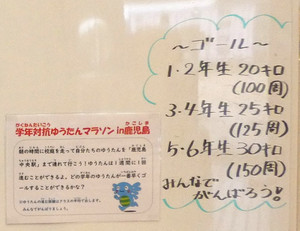 がくねんたいこう かごしま
学年対抗ゆうたんマラソンin鹿児島
朝の時間に校庭を走って自分たちのゆうたんを「鹿児島
中央駅」まで連れて行こう！ゆうたんは1週間に1回
進むことができるよ。どの学年のゆうたんが一番早くゴ
ールすることができるかな？
みんなでがんばりましょう。
〜ゴール〜
1・2年生 20キロ
(100周)
3・4年生 25キロ
(125周)
5・6年生 30キロ
(150周)
みんなで
がんばろう!